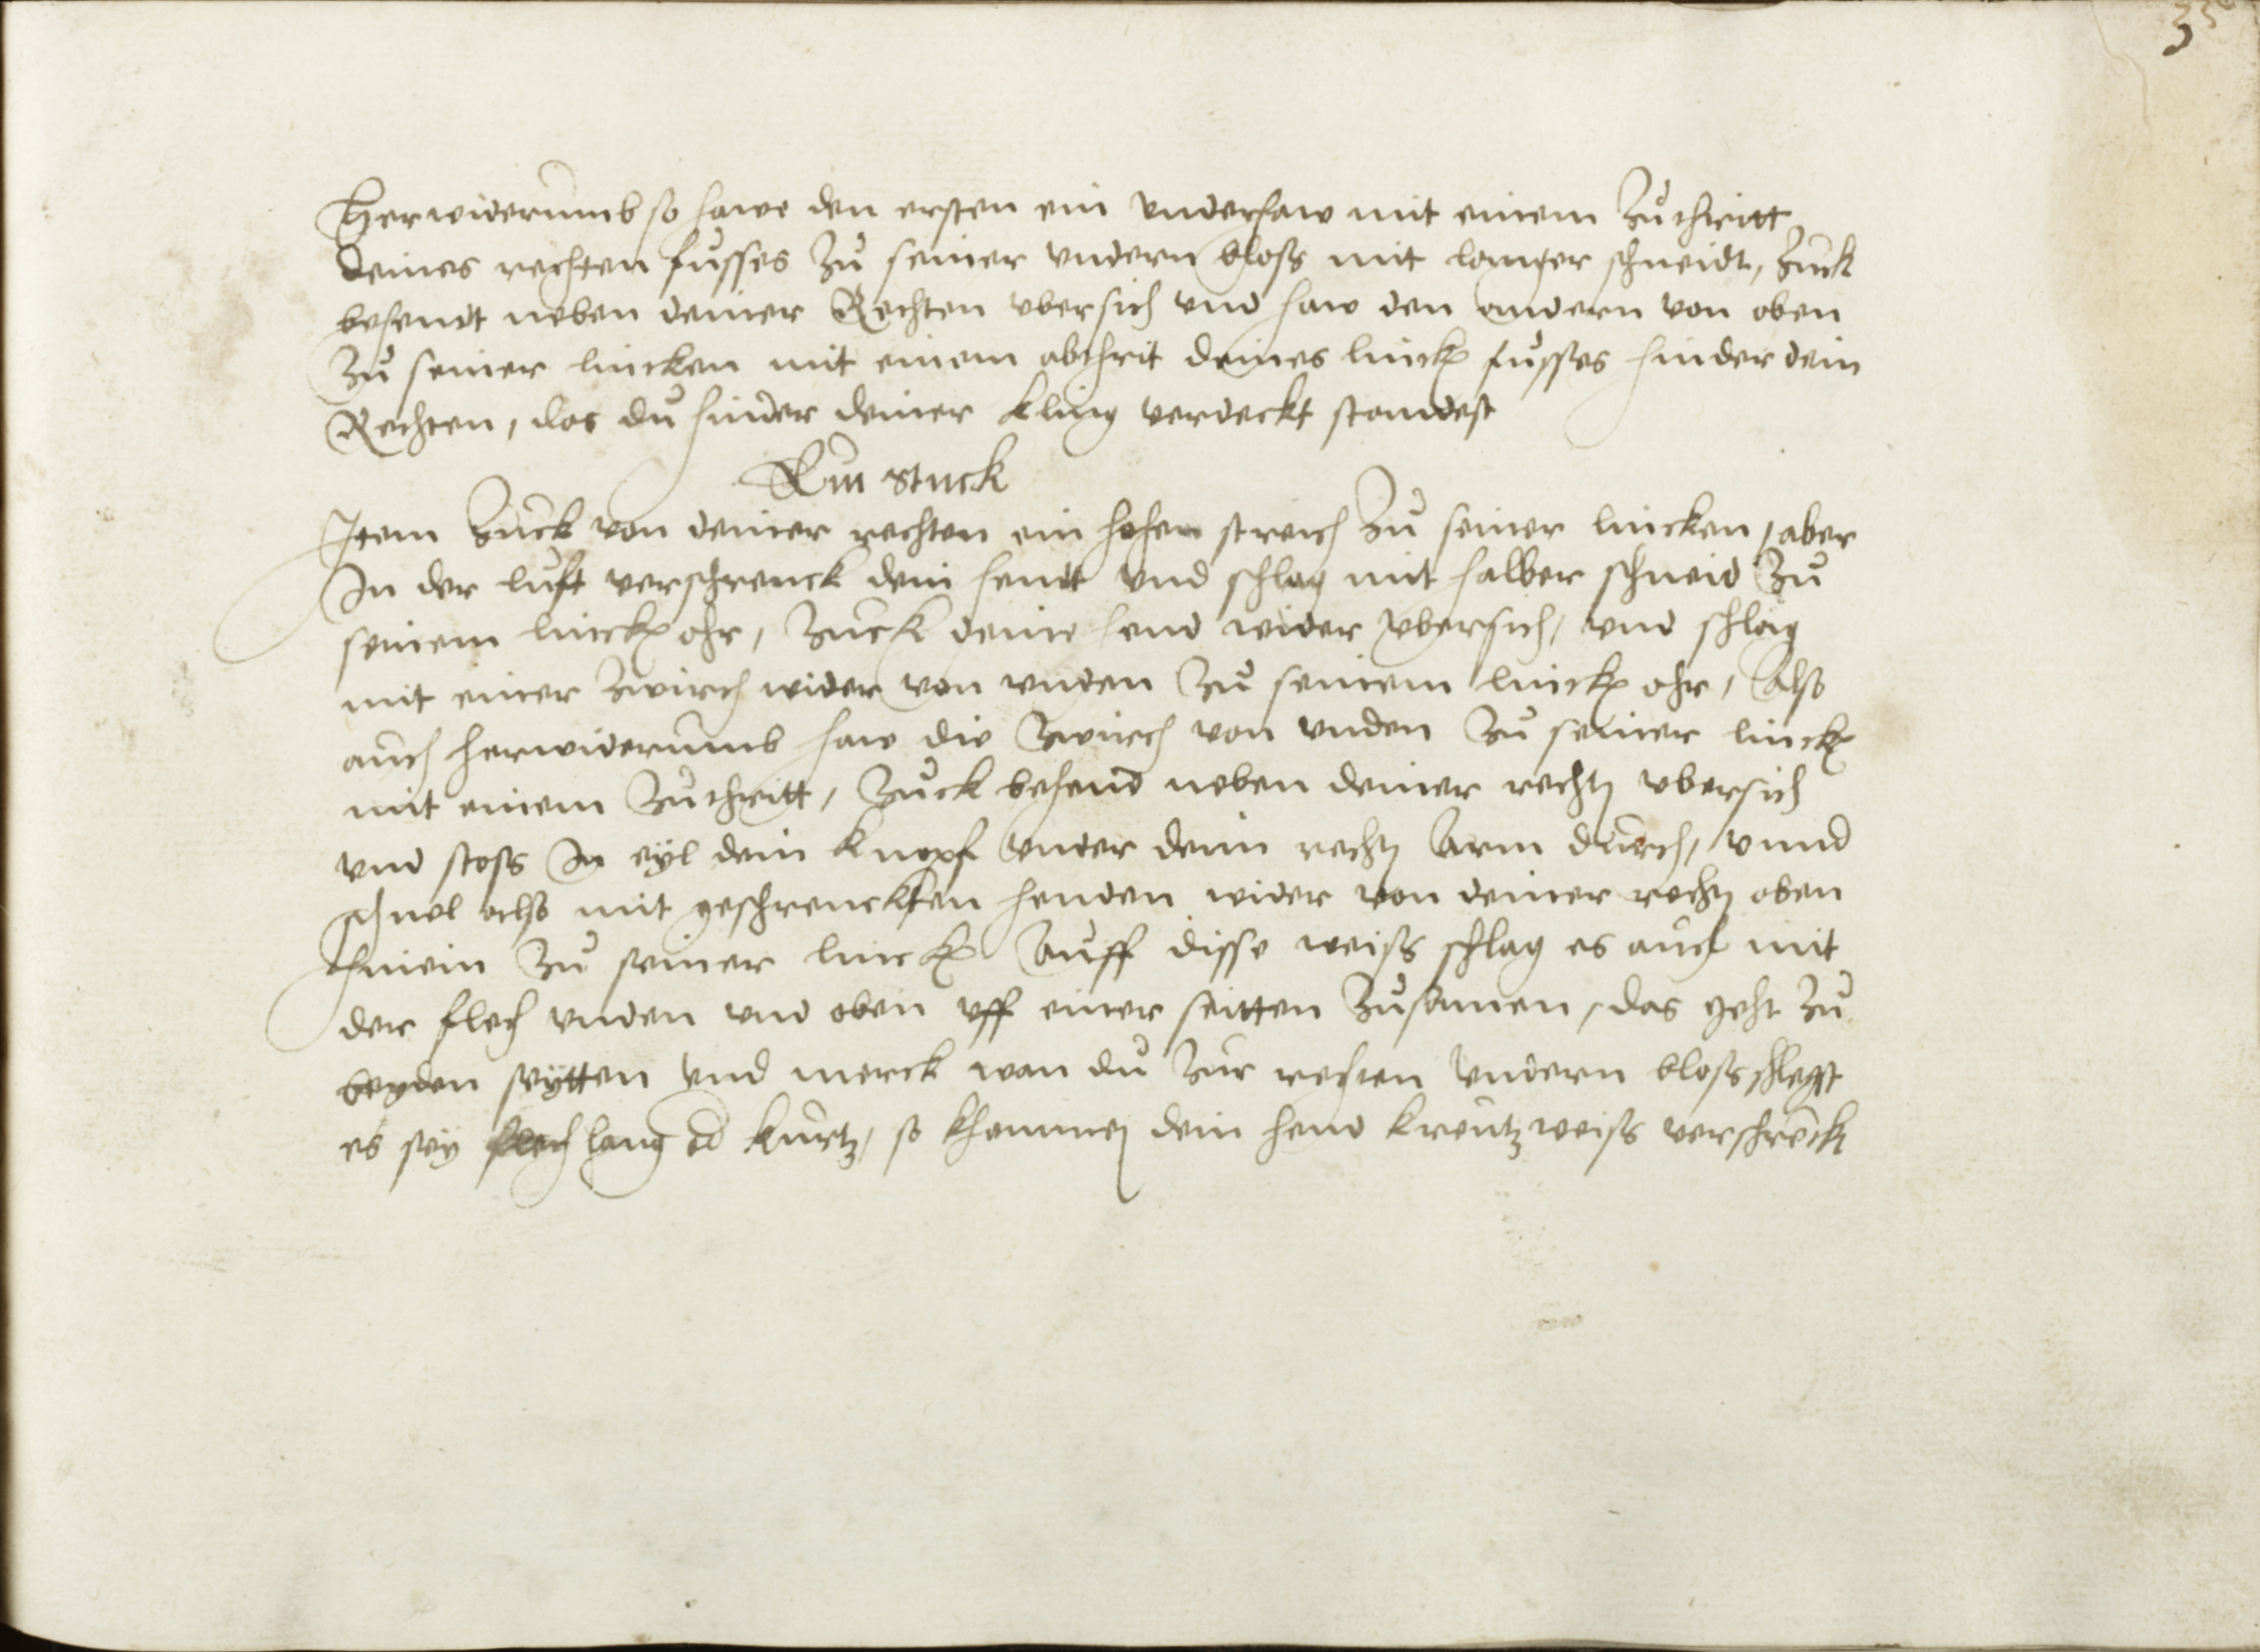 35
Herwiderumb so hawe den ersten ein underhaw mit einem Zuthritt
deines rechten fusses Zu seiner undern bloss mit langer schneidt, Zuck
behendt neben deiner Rechten ubersich und haw den andern von oben
Zu seiner lincken mit einem abthrit deines linck fusses hinder dein
Rechten, das du hinder deiner kling verdeckt standest
Ein stuck
Item Zuck von deiner rechten ein hohen streich Zu seiner lincken, aber
In der luft verschrenck dein hendt und schlag mit halber schneid Zu
seinem linck ohr, Zuck deine hend wider ubersich, und schlag
mit einer Zwirch wider von unden Zu seinem linck ohr, Also
auch herwiderumb haw die Zwirch von unden Zu seiner linck
mit einem Zuthritt, Zuck behend neben deiner recht ubersich
und stoss In eyl dein knopf Under dein recht Arm durch, unnd
schnel also mit geschrenckten henden wider von deiner recht oben
hinein Zu seiner linck Auff disse weiss schlag es auch mit
der flech unden und oben uff einer seitten Zusamen, das geht Zu
beyden seytten und merck wan du Zur rechten undern bloss schlegst
es sey flech lang od kurtz, so khommen dein hend kreutzweiss verschrenck